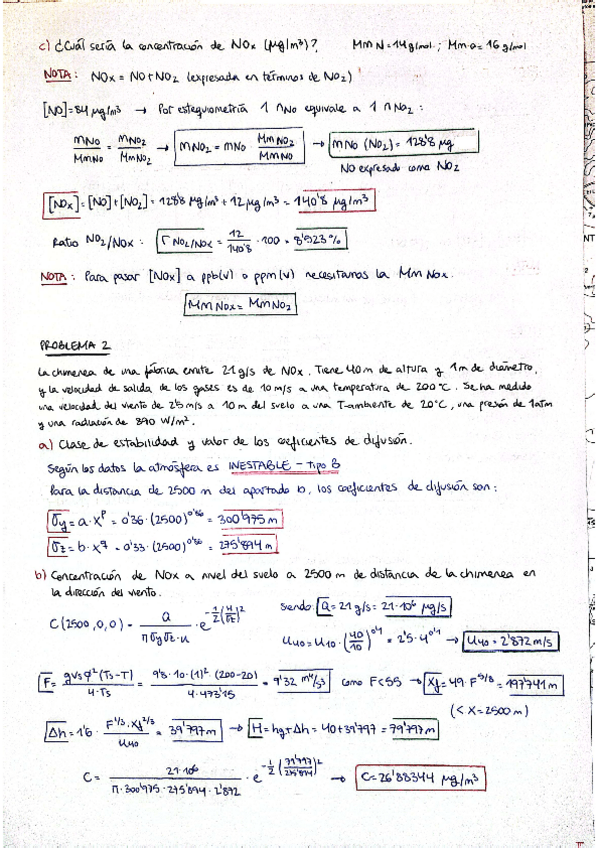 c) ¿Cuál sería la concentración de NOx (μg/m³)? MmN=14g/mol ; MmO=16 g/mol
NOTA: NOx = NO+NO2 (expresada en términos de NO2)
[NO]=84 μg/m³ → Por estequiometría 1 nNO equivale a 1 nNO2 :
mNO/MmNO = mNO2/MmNO2 → mNO2 = mNO · MmNO2/MmNO → mNO (NO2) = 128'8 μg
NO expresado como NO2
[NOx]=[NO]+[NO2]= 128'8 μg/m³ + 12 μg/m³ = 140'8 μg/m³
Ratio NO2/NOx : r NO2/NOx = 12/140'8 · 100 = 8'523%
NOTA: Para pasar [NOx] a ppb(v) o ppm(v) necesitamos la MmNOx.
MmNOx = MmNO2
PROBLEMA 2
La chimenea de una fábrica emite 21 g/s de NOx. Tiene 40 m de altura y 1 m de diámetro,
y la velocidad de salida de los gases es de 10 m/s a una temperatura de 200°C. Se ha medido
una velocidad del viento de 2'5 m/s a 10 m del suelo a una T-ambiente de 20°C, una presión de 1atm
y una radiación de 890 W/m².
a) Clase de estabilidad y valor de los coeficientes de difusión.
Según los datos la atmósfera es INESTABLE - tipo B
Para la distancia de 2500 m del apartado b, los coeficientes de difusión son:
σy = a · x^p = 0'36 · (2500)^0'86 = 300'975 m
σz = b · x^q = 0'33 · (2500)^0'86 = 275'894 m
b) Concentración de NOx a nivel del suelo a 2500 m de distancia de la chimenea en
la dirección del viento.
C(2500,0,0) = Q/(π σy σz · u) · e^(-1/2 (H/σz)²) siendo Q = 21 g/s = 21·10⁶ μg/s
u40 = u10 · (40/10)^0'1 = 2'5 · 4^0'1 → u40 = 2'872 m/s
F = g vs φ² (Ts-T)/(4·Ts) = 9'8 · 10 · (1)² (200-20)/(4·473'15) = 9'32 m⁴/s³ como F<55 → Xf = 49 · F^5/8 = 197'741 m
(< X=2500 m)
Δh = 1'6 · F^1/3 · Xf^2/3 / u40 = 39'797 m → H = hg + Δh = 40+39'797 = 79'797 m
C = 21·10⁶/(π · 300'975 · 275'894 · 2'872) · e^(-1/2 (79'797/275'894)²) → C = 26'88344 μg/m³